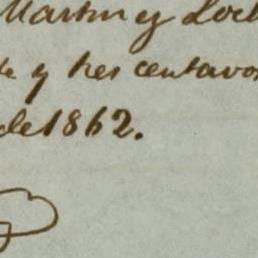 Martin y Loch
te y tres centavos
de 1862.